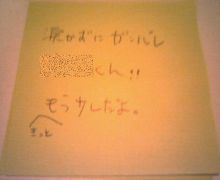 涙かずに ガンバレ
くん!!
もう少しだよ。
きっと